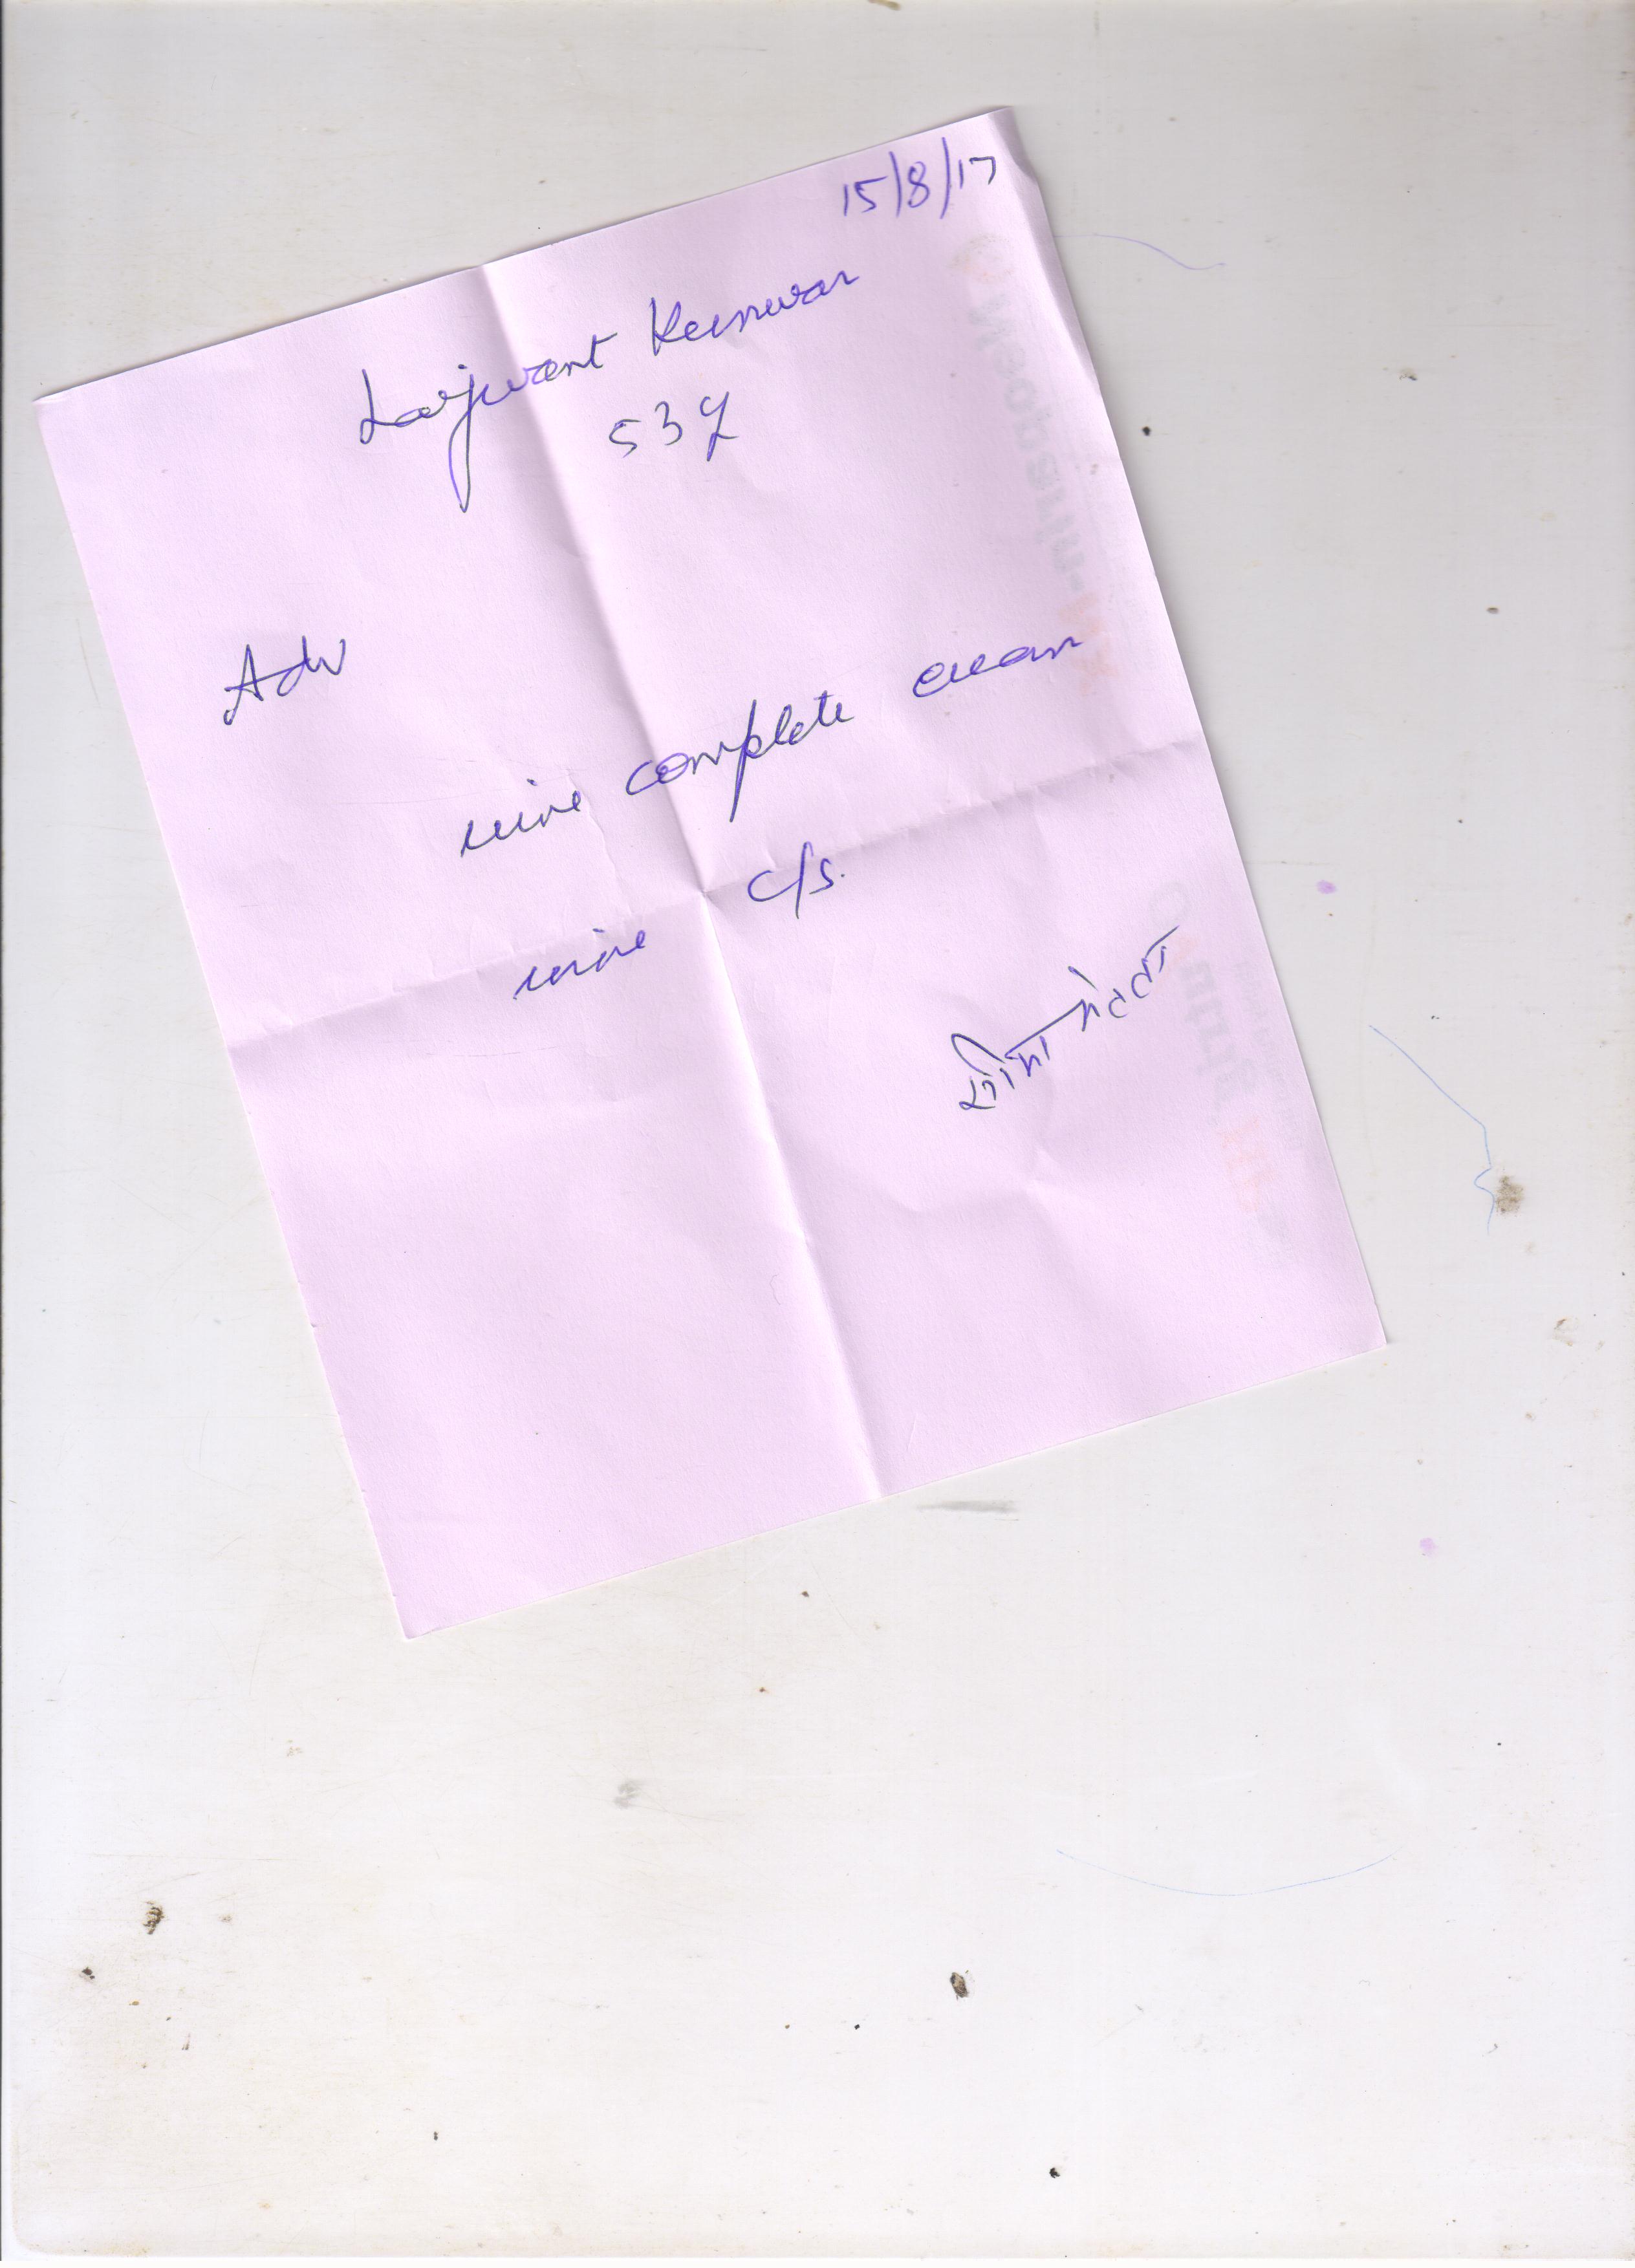 15/8/17
Lajwant Kunwar
53y
Adv
urine complete exam
urine c/s.